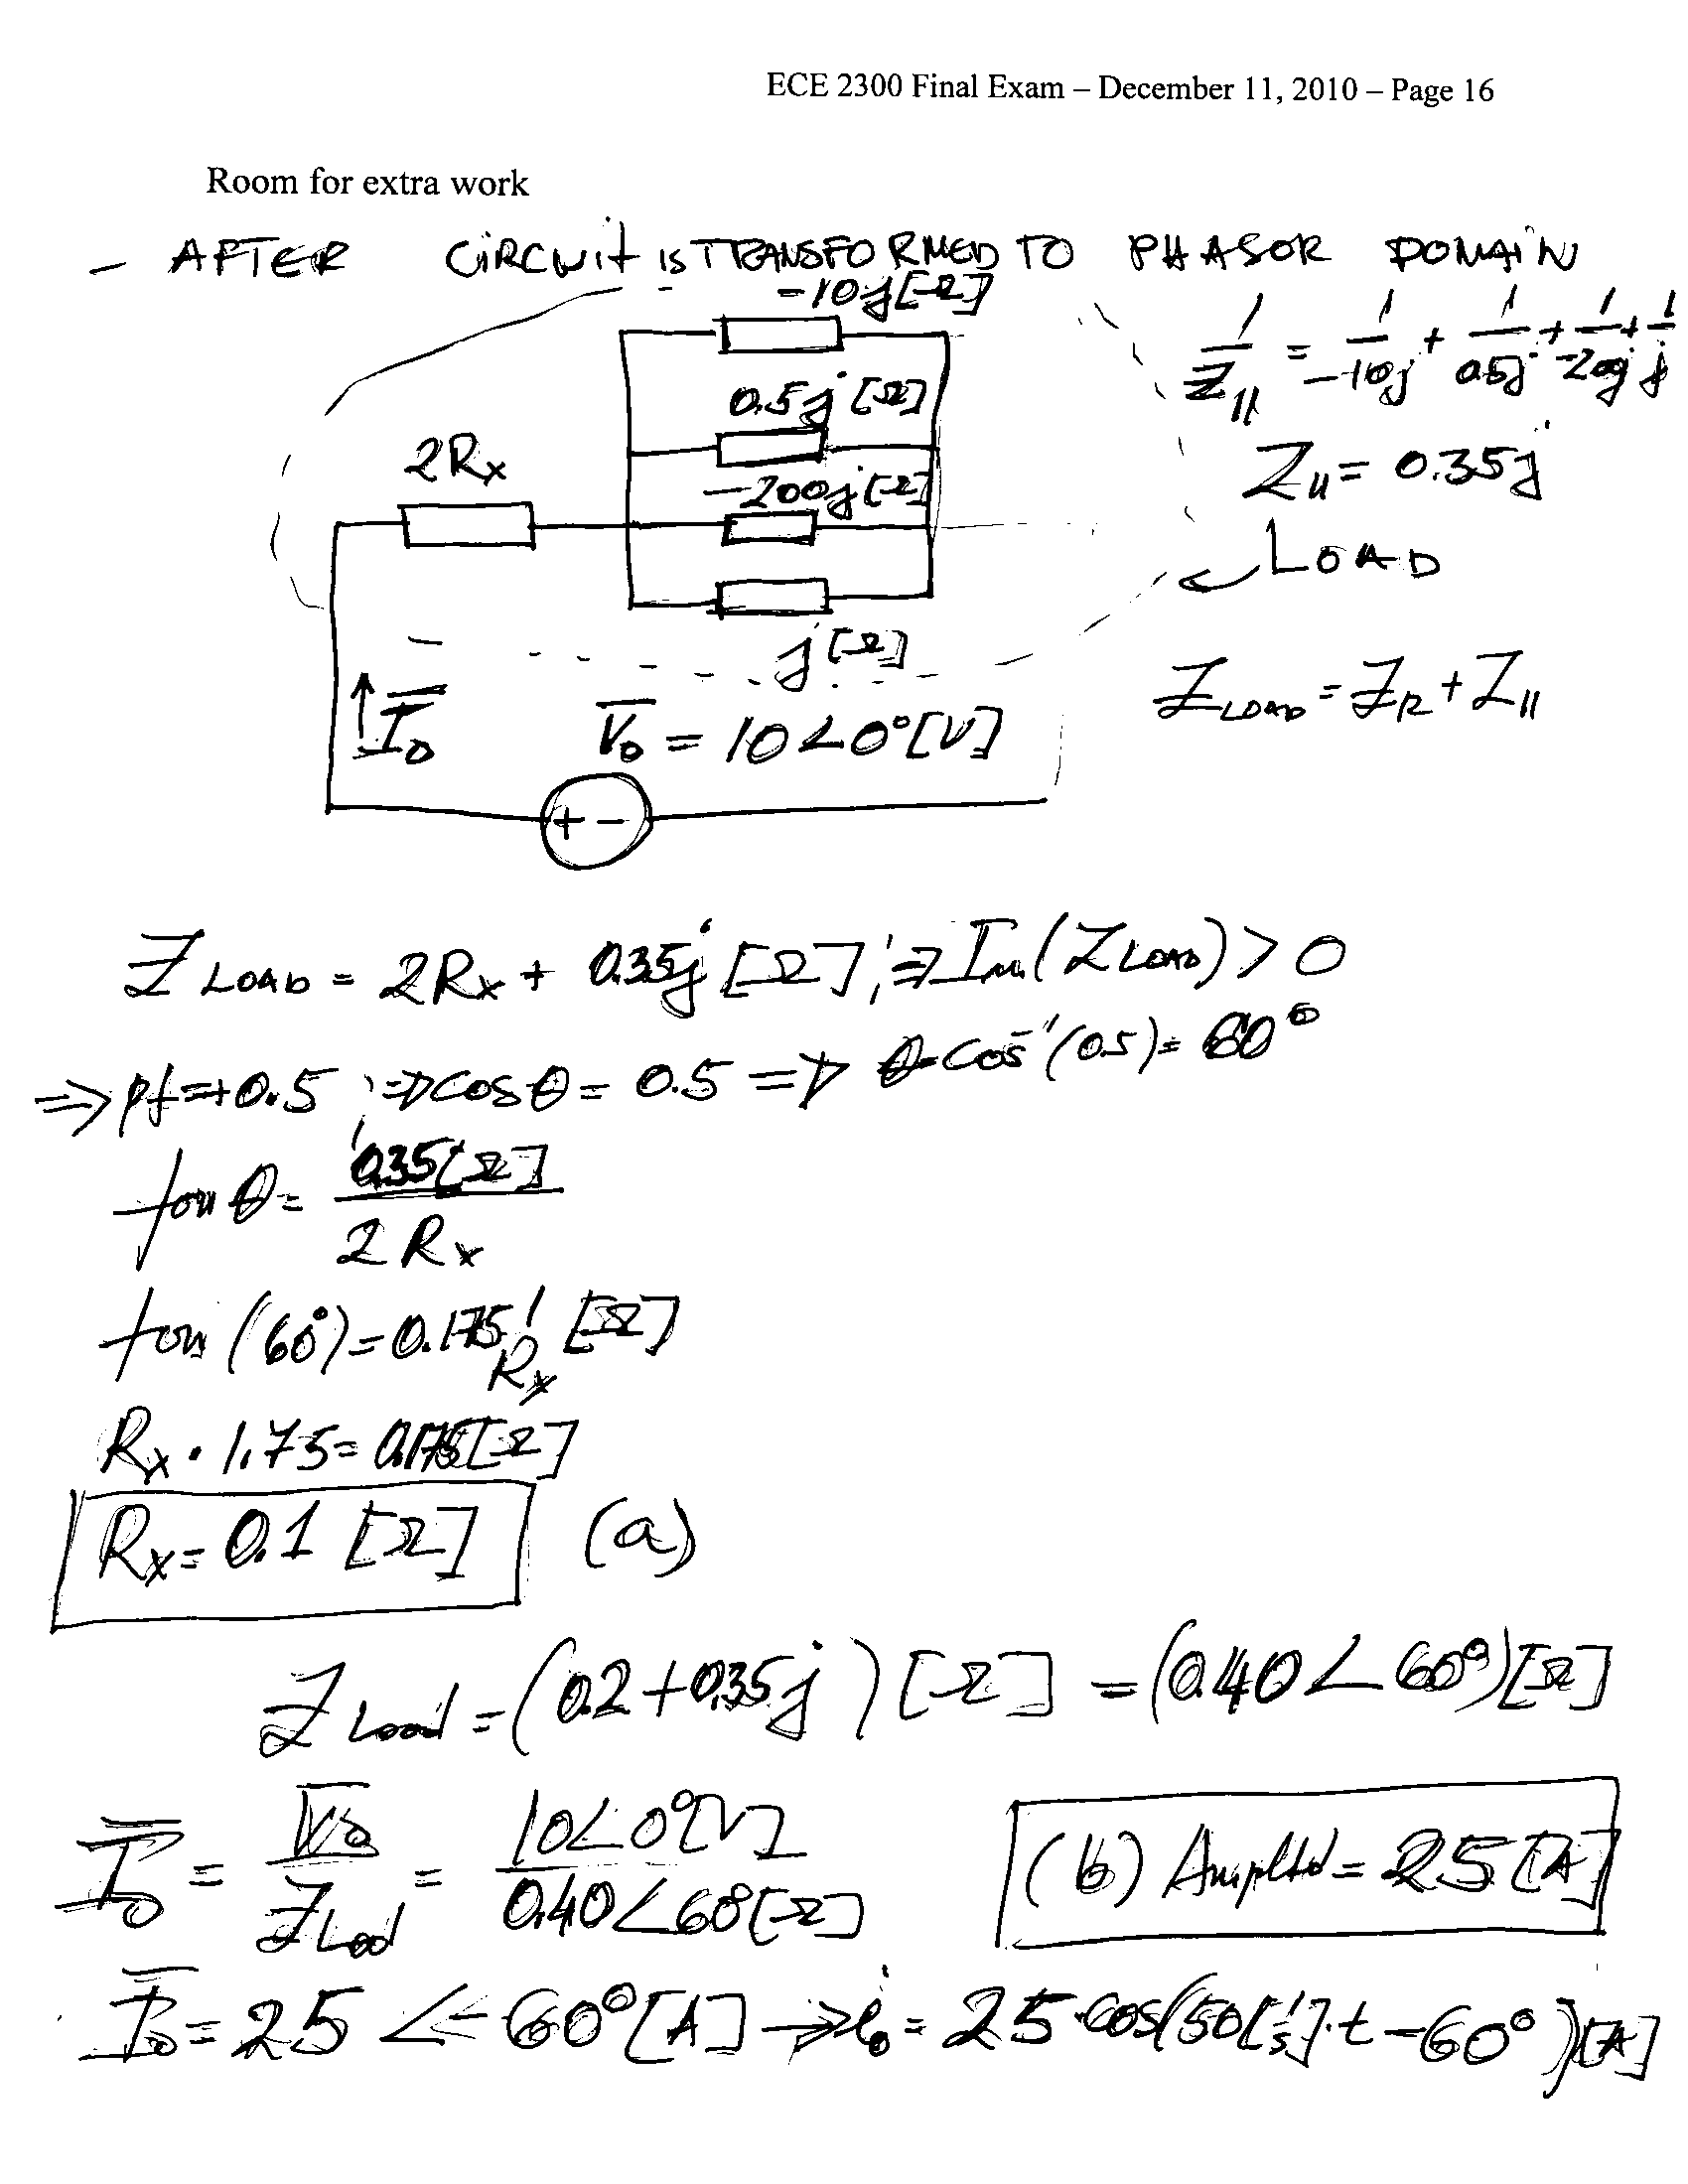 ECE 2300 Final Exam – December 11, 2010 – Page 16
Room for extra work
– AFTER CIRCUIT IS TRANSFORMED TO PHASOR DOMAIN
-10j[Ω]
1/Z11 = 1/-10j + 1/0.5j + 1/-200j + 1/j
0.5j [Ω]
2Rx
-200j[Ω]
Z11 = 0.35j
LOAD
j[Ω]
Z LOAD = ZR + Z11
I0
V0 = 10 < 0° [V]
+ -
Z LOAD = 2Rx + 0.35j [Ω]; => Im(Z LOAD) > 0
=> pf = +0.5 ; => cos θ = 0.5 => θ = cos-1(0.5) = 60°
tan θ = 0.35[Ω] / 2Rx
tan (60°) = 0.175 / Rx [Ω]
Rx · 1.75 = 0.175[Ω]
Rx = 0.1 [Ω] (a)
Z Load = (0.2 + 0.35j) [Ω] = (0.40 < 60°)[Ω]
I0 = V0 / Z Load = 10<0°[V] / 0.40<60[Ω]
(b) Amplitd = 25 [A]
I0 = 25 <-60° [A] → i0 = 25 · cos(50[1/s]·t - 60°)[A]